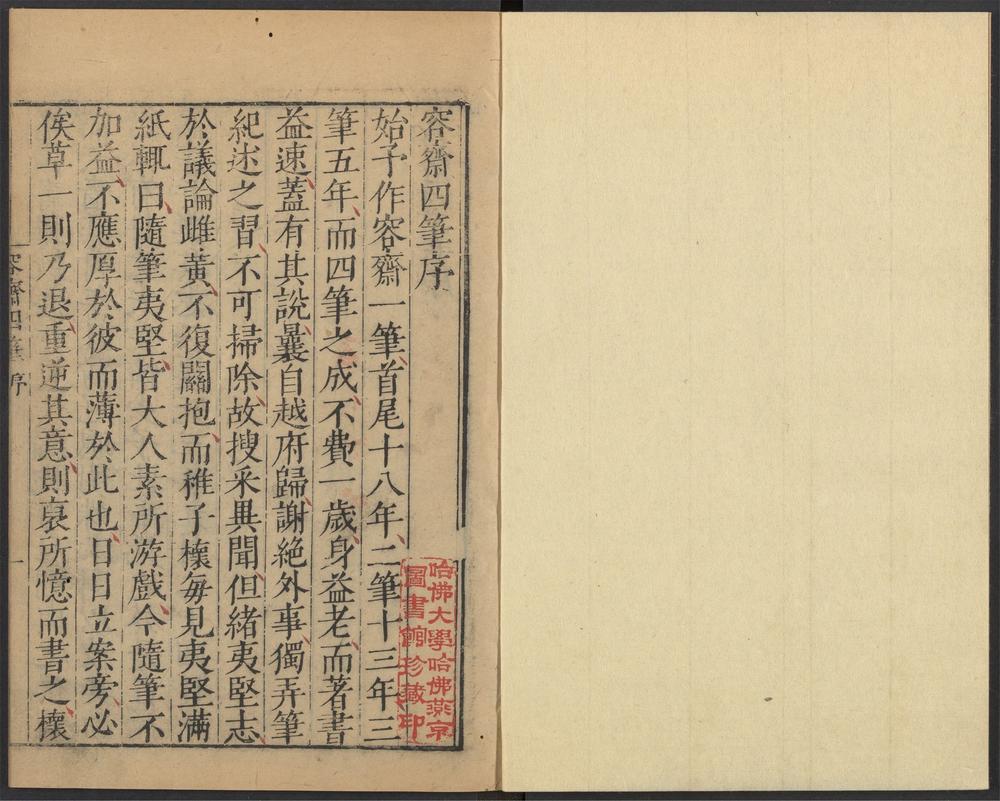 容齋四筆序
始予作容齋一筆首尾十八年二筆十三年三
筆五年而四筆之成不費一歲身益老而著書
益速蓋有其說曩自越府歸謝絕外事獨弄筆
紀述之習不可掃除故搜采異聞但緒夷堅志
於議論雌黃不復關抱而稚子櫰每見夷堅滿
紙輒曰隨筆夷堅皆大人素所游戲今隨筆不
加益不應厚於彼而薄於此也日日立案旁必
俟草一則乃退重逆其意則裒所憶而書之櫰
容齋四筆序
一
哈佛大學哈佛燕京
圖書館珍藏印